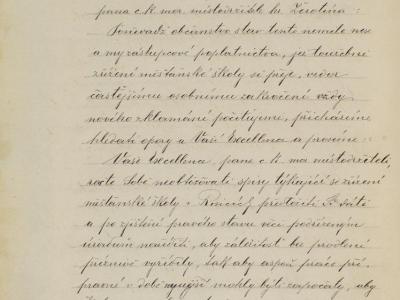 pana c. k. mor. místodržitele hr. Žerotína:
Poněvadž občanstvo stav tento nemile nese
a my zástupcové poplatnictva, jež toužebně
zřízení měšťanské školy si přeje,
častějšímu osobnímu zakročení vždy
nového zklamání pociťujeme, přicházíme
hledati opory u Vaší Excellenci a prosíme:
Vaše Excellenci, pane c. k. mor. místodržiteli,
račte Sobě neobtěžovati spisy týkající se zřízení
měšťanské školy v předložiti dáti
a po zjištění pravého stavu věci podřízeným
úřadům naříditi, aby záležitost bez prodlení
příznivě vyřídily, tak aby aspoň práce pří-
pravné v době nynější mohly býti započaty, aby